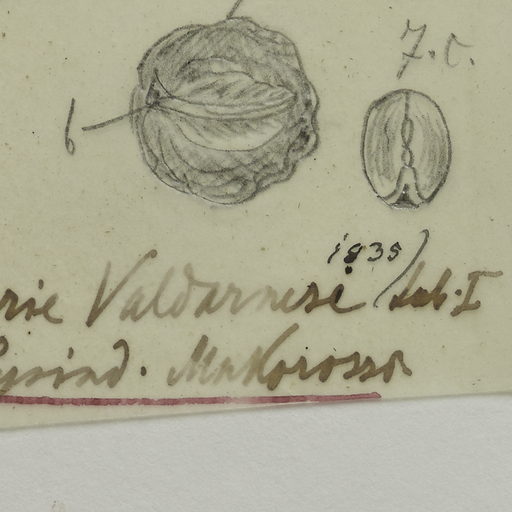 7.c.
b
1835)
rie Valdarnesi tab. I
Makorosso